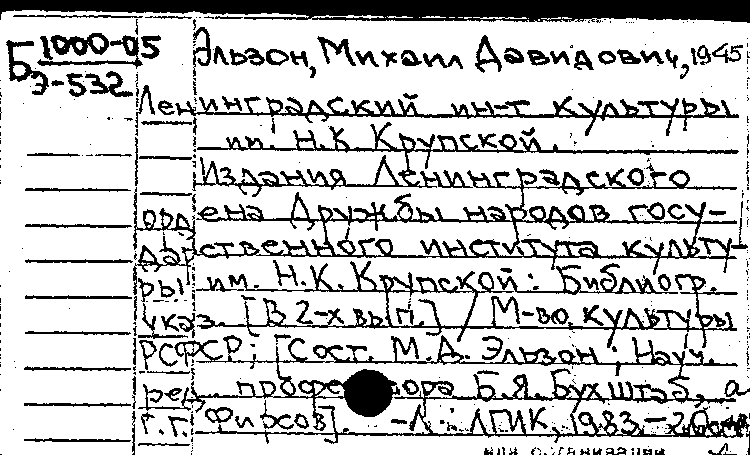 Б 1000-05
Э-532
Эльзон, Михаил Давидович, 1945
Ленинградский ин-т культуры
им. Н.К Крупской.
Издания Ленинградского
ордена Дружбы народов госу-
дарственного института культу-
ры им. Н.К. Крупской: Библиогр.
указ. [В 2-х вып.] / М-во культуры
РСФСР; [Сост. М.Д. Эльзон; Науч.
ред. профессора Б.Я. Бухштаб, а
Г.Г. Фирсов]. -Л.: ЛГИК, 1983.-
или организации